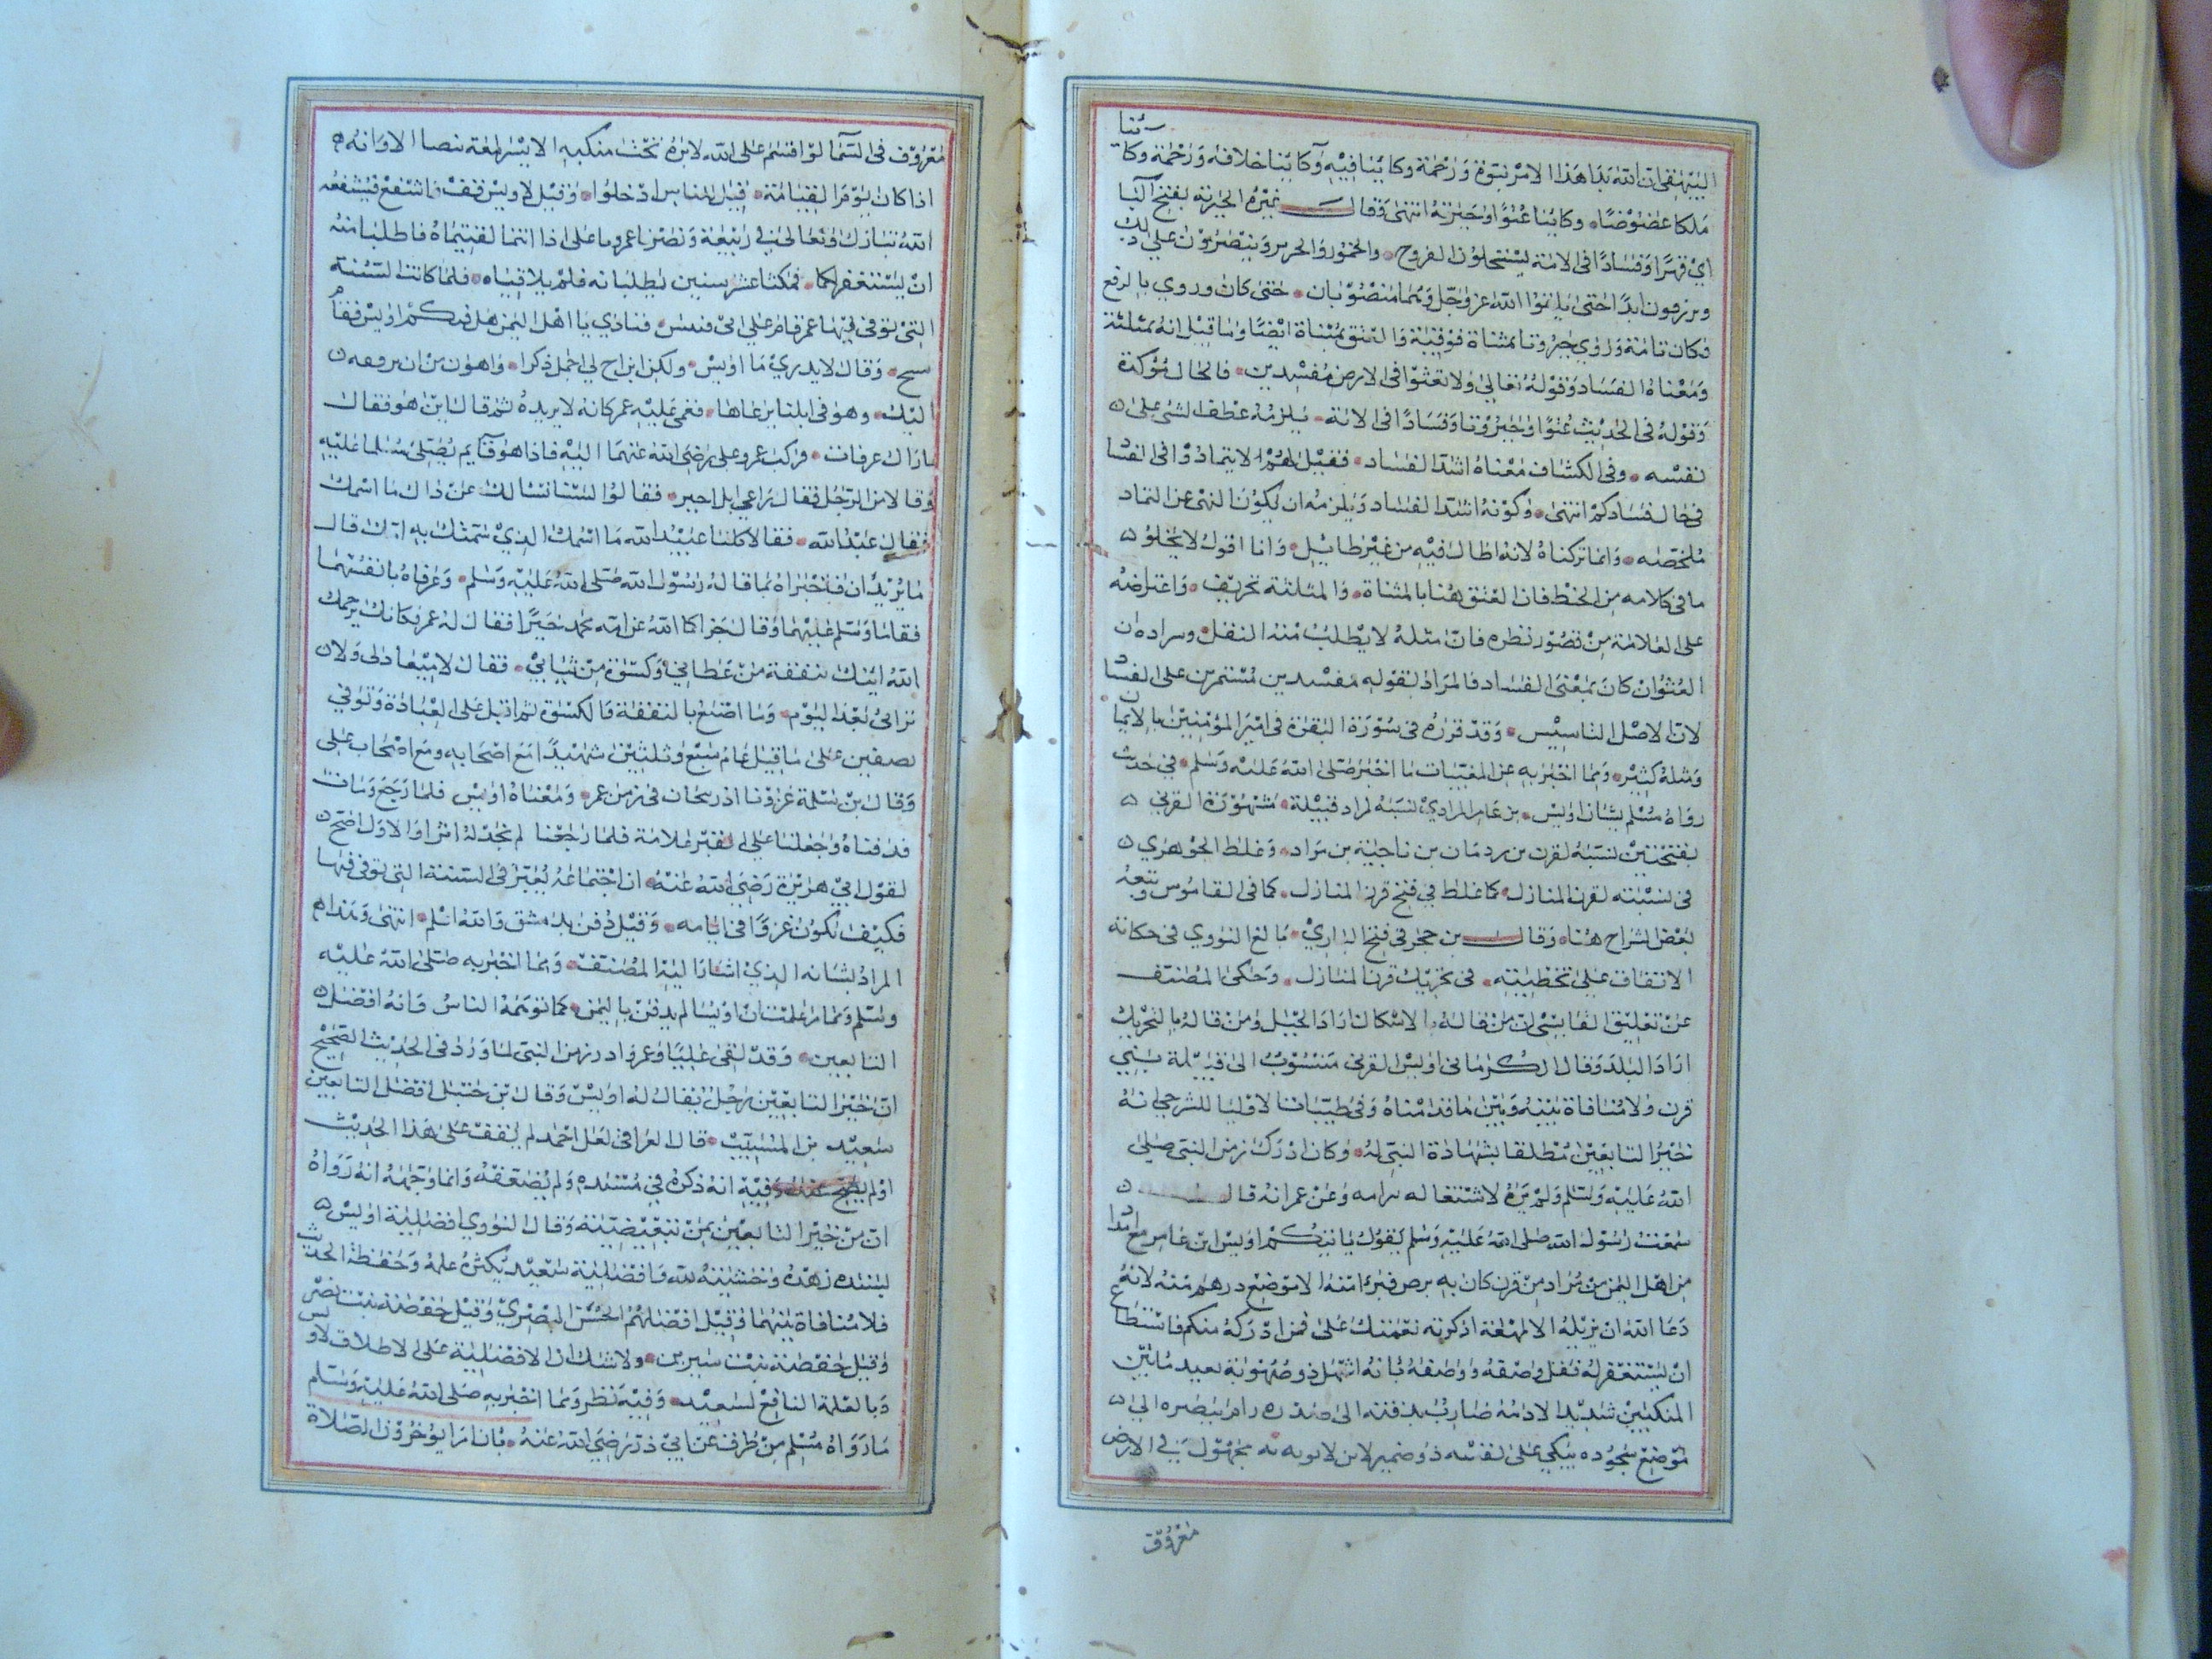 البيهقى ان الله بدا هذا الامر نبوة ورحمة وكاينا فيه وكاينا خلافة ورحمة وكائنا
ملكا عضوضا وكاينا عنوا وجبرية انتهى وقال غيره الجبرية بفتح البا
اي قهرا وفسادا فى الامة يستحلون الفروج والخمور والحرير وينصرون على ذلك
ويرزقون ابدا حتى يلقوا الله عز وجل وهما منصوبان حتى كان وروي بالرفع
فكان تامة وروي جبروتا بمثناة فوقية والعتو بمثناة ايضا وما قيل انه بمثلثة
ومعناه الفساد وقوله تعالى ولا تعثوا فى الارض مفسدين فالحال مؤكدة
وقوله فى الحديث عنوا وجبروتا وفسادا فى الامة يلزمه عطف الشى على
نفسه وفى الكشاف معناه اشد الفساد فقيل لهم لا يتمادوا فى الفساد
فى حال فسادكم انتهى وكونه اشد الفساد ويلزمه ان يكون النهى عن التماد
ملخصه وانما تركناه لانه اطال فيه من غير طايل وانا اقول لا يخلو
ما فى كلامه من الخط فان العتو هنا بالمثناة والمثلثة تحريف واعتراضه
على العلامة من قصور نظره فان مثله لا يطلب منه النقل ومراده ان
العثو ان كان بمعنى الفساد فالمراد بقوله مفسدين مستمرين على الفساد
لان الاصل التاسيس وقد قرره فى سورة البقرة فى امير المؤمنين بالايمان
ومثله كثير ومما اخبر به عن المغيبات ما اخبر صلى الله عليه وسلم فى حديث
رواه مسلم بشان اويس بن عامر المرادي نسبه لمراد قبيلة مشهورة القرنى
بفتحتين نسبة لقرن بن ردمان بن ناجية بن مراد وغلط الجوهري
فى نسبته لقرن المنازل كما غلط فى فتح قرن المنازل كما فى القاموس وتبعه
بعض الشراح هنا وقال بن حجر فى فتح الباري بالغ النووي فى حكاية
الاتفاق على تخطيته فى تحريك قرن المنازل وحكى المصنف
عن تعليق القابسى ان من قاله بالاسكان اراد الجبل ومن قاله بالتحريك
اراد البلد وقال الكرمانى اويس القرنى منسوب الى قبيلة بنى
قرن ولا منافاة بينه وبين ما قدمناه وفى طبقات الاوليا للشرجى انه
خير التابعين مطلقا بشهادة النبى له وكان ادرك زمن النبى صلى
الله عليه وسلم ولم يره لاشتغاله بامه وعن عمر انه قال
سمعت رسول الله صلى الله عليه وسلم يقول ياتيكم اويس ابن عامر مع امداد
من اهل اليمن من مراد من قرن كان به برص فبرا منه الا موضع درهم منه لانه
دعا الله ان يزيله الا لمعة اذكر به نعمتك على فمن ادركه منكم فاستطاع
ان يستغفر له فليفعل وصفه ووصفه بانه اشهل ذو صهوبة بعيد ما بين
المنكبين شديد الادمة ضارب بذقنه الى صدره رام ببصره الى
موضع سجوده يبكى على نفسه ذو طمرين لا يوبه به مجهول فى الارض
معروف
معروف فى السما لو اقسم على الله لابره تحت منكبه الايسر لمعة بيضا الا وانه
اذا كان يوم القيامة قيل للناس ادخلوا وقيل لاويس قف فاشفع فيشفعه
الله تبارك وتعالى فى ربيعة ومضر يا عمر ويا على اذا انتما لقيتماه فاطلبا منه
ان يستغفر لكما فمكثا عشر سنين يطلبانه فلم يلاقياه فلما كانت السنة
التى توفى فيها عمر قام على ابى قبيس فنادي يا اهل اليمن هل فيكم اويس فقام
شيخ وقال لا يدري ما اويس ولكن ابن اخ لي اخمل ذكرا واهون من ان نرفعه
اليك وهو فى ابلنا يرعاها فعمى عليه عمر كانه لا يريده ثم قال اين هو فقال
باراك عرفات فركب عمر وعلى رضى الله عنهما اليه فاذا هو قايم يصلى فسلما عليه
وقالا من الرجل فقال راعي ابل اجير فقالوا لسنا نسالك عن ذاك ما اسمك
فقال عبد الله فقالا كلنا عبيد الله ما اسمك الذي سمتك به امك قال
ما تريدان فاخبراه بما قاله رسول الله صلى الله عليه وسلم وعرفاه بانفسهما
فقام وسلم عليهما وقال جزاكما الله عن امة محمد خيرا فقال له عمر مكانك يرحمك
الله ايتك بنفقة من عطايى وكسوة من ثيابي فقال لا ميعاد لى ولا
ترانى بعد اليوم وما اصنع بالنفقة والكسوة ثم اقبل على العبادة وتوفي
بصفين على ما قيل عام سبع وثلثين شهيدا مع اصحابه ومع اصحاب على
وقال بن سلمة غزونا اذربيجان فى زمن عمر ومعناه اويس فلما رجع ومات
فدفناه وجعلنا على القبر علامة فلما رجعنا لم نجد له اثرا والاول اصح
لقول ابى هريرة رضى الله عنه ان اجتماعه بعمر فى السنة التى توفى فيها
فكيف يكون غزوا فى ايامه وقيل دفن بدمشق والله اعلم انتهى وهذا
المراد بشانه الذي اشار اليه المصنف ومما اخبر به صلى الله عليه
وسلم ومما علمت ان اويسا لم يدفن باليمن كما توهمه الناس وانه افضل
التابعين وقد لقى عليا وعمر وادرك زمن النبى لما ورد فى الحديث الصحيح
ان خير التابعين رجل يقال له اويس وقال بن حنبل افضل التابعين
سعيد بن المسيب قال العراقى لعل احمد لم يقف على هذا الحديث
او لم يصح عنده وفيه انه ذكره فى مسنده ولم يضعفه وانما وجهه انه رواه
ان من خير التابعين بمن تبعيضية وقال النووي افضلية اويس
بشده زهده وخشيته لله وافضلية سعيد بكثرة علمه وحفظه الحديث
فلا منافاة بينهما وقيل افضلهم الحسن البصري وقيل حفصة بنت
وقيل حفصة بنت سيرين ولا شك ان الافضلية على الاطلاق لاويس
وبالعلم النافع لسعيد وفيه نظر ومما اخبر به صلى الله عليه وسلم
ما رواه مسلم من طرفه عن ابي ذر رضى الله عنه بان امرا يؤخرون الصلاة